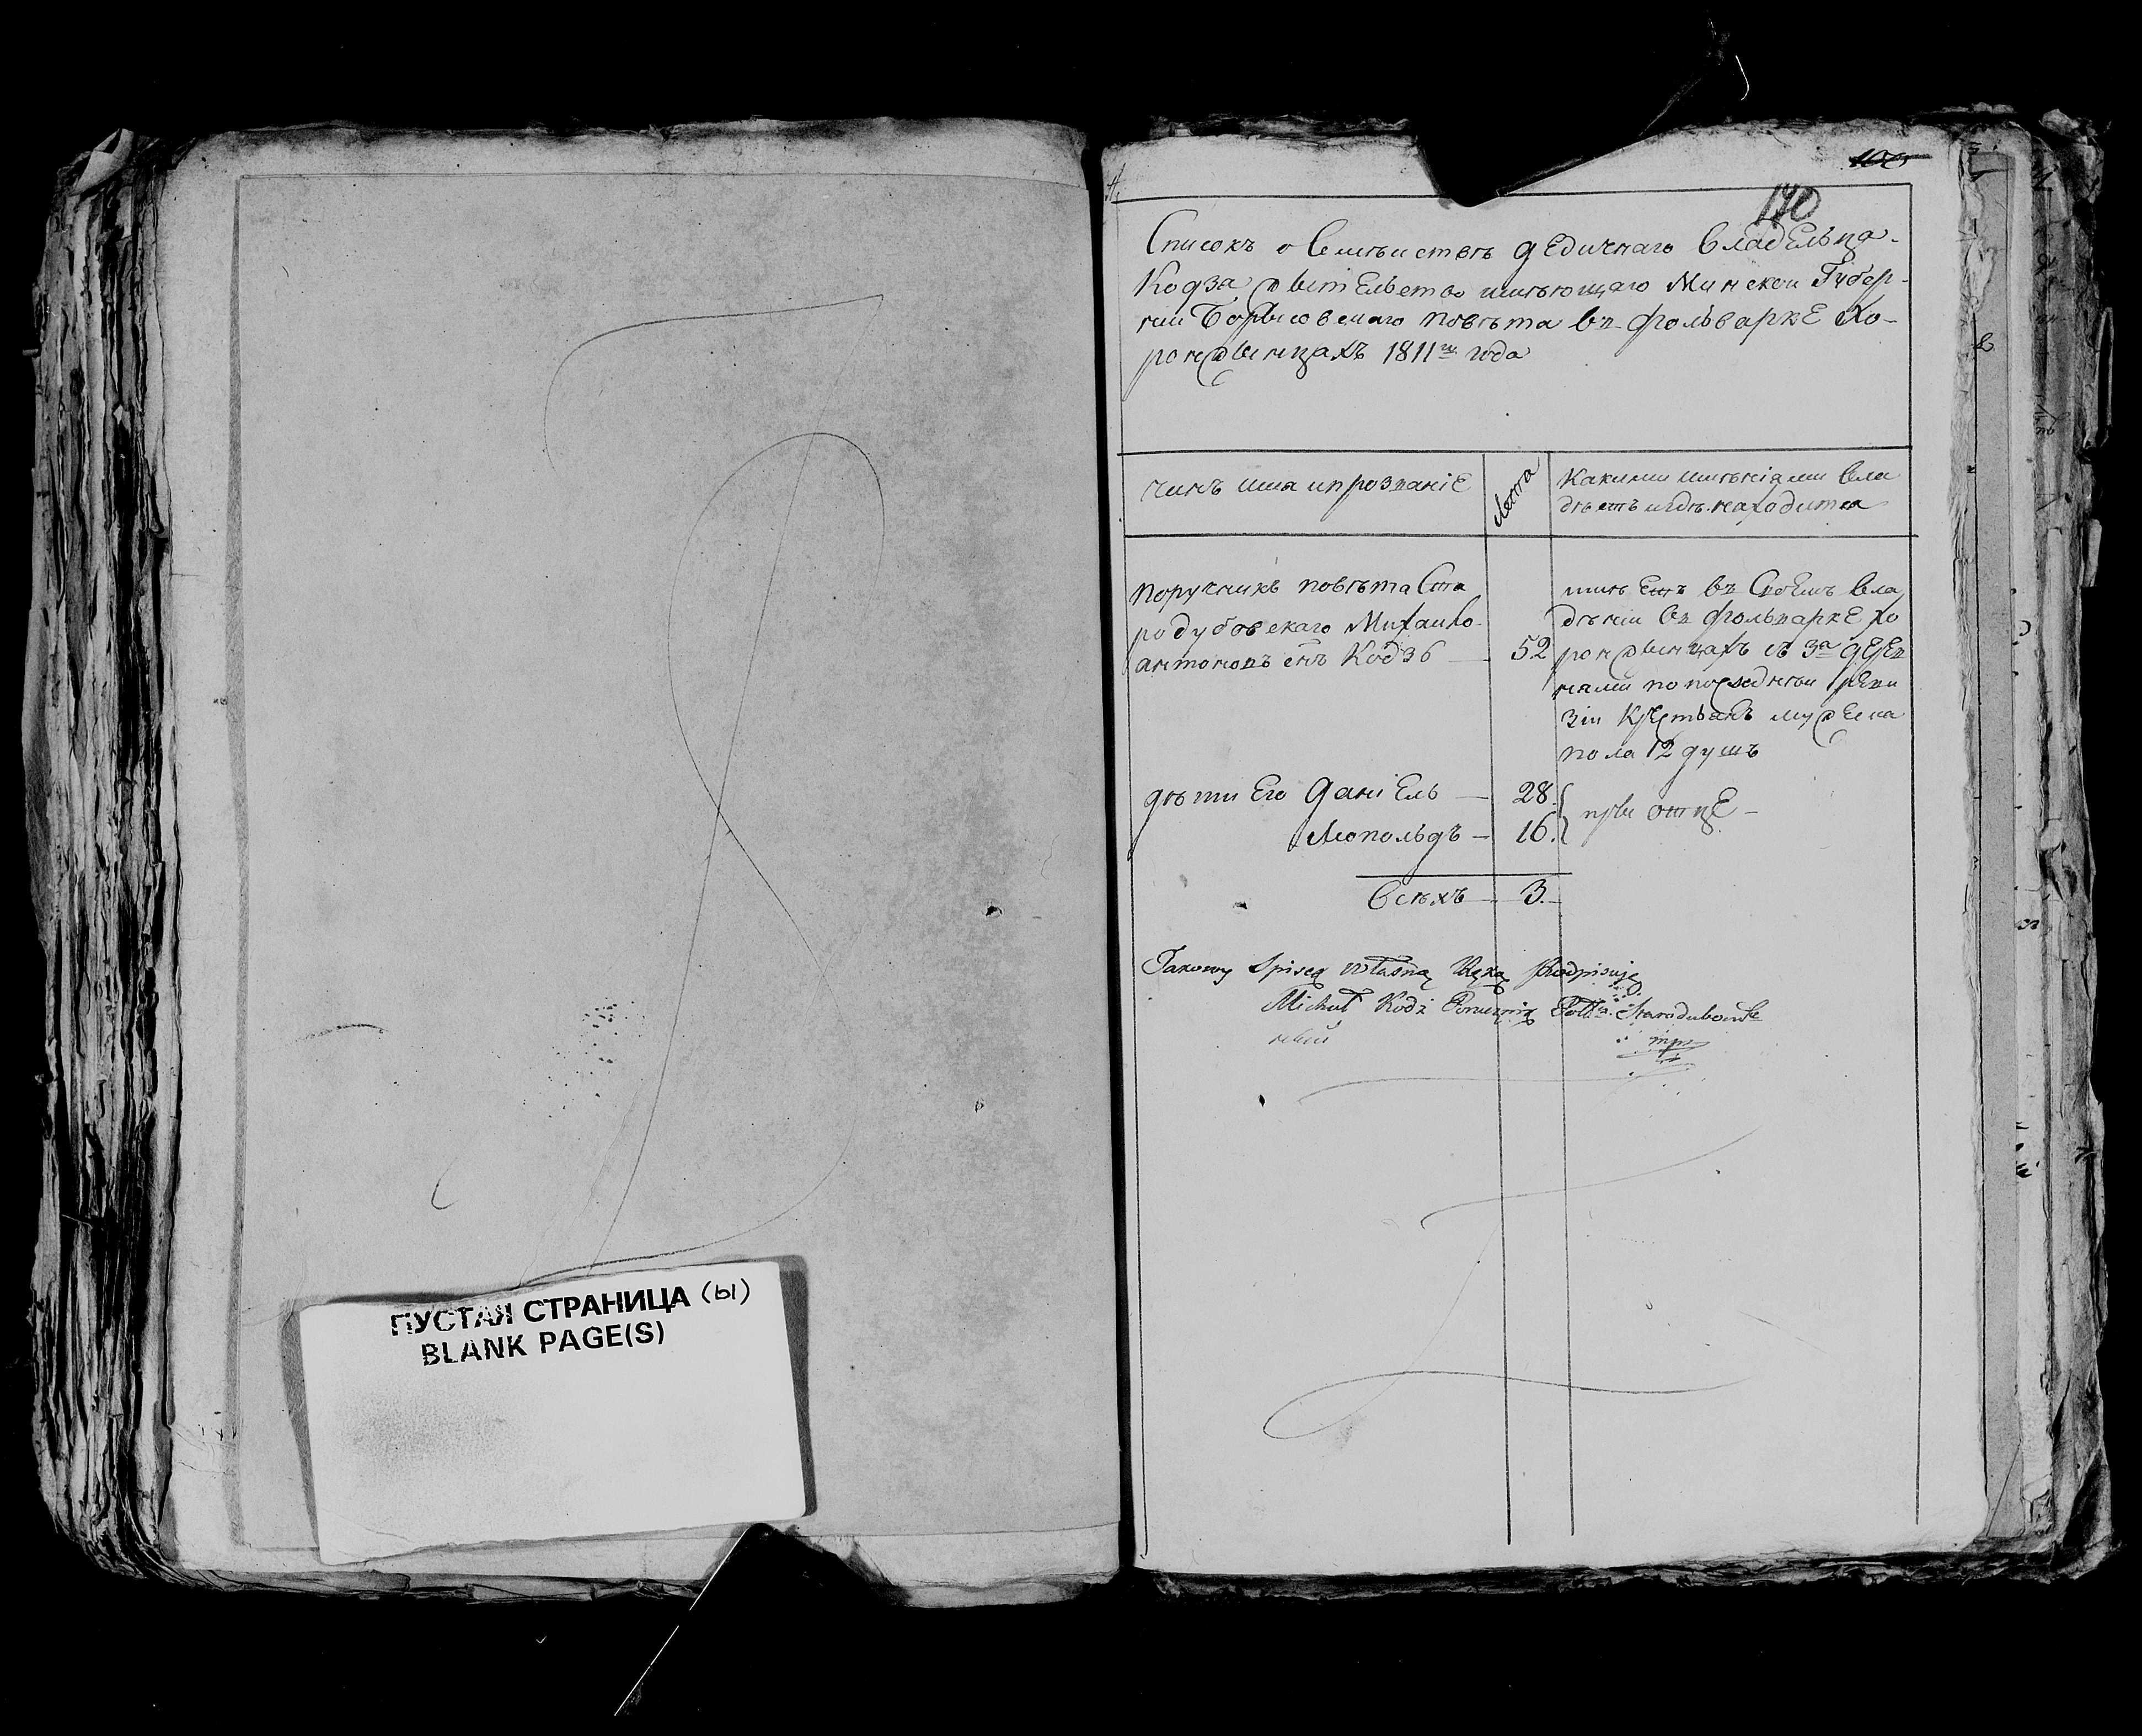 ПУСТАЯ СТРАНИЦА (ы)
BLANK PAGE(S)
190
Списокъ о Семѣиствѣ дедичнаго владельца
Кодза жытельство имѣющаго Минской Губер-
нии Борысовскаго повѣта въ фольварке Хо-
ронжынцахъ 1811го года
чинъ имя и прозваніе
Лѣта
какими имѣніями вла
дѣетъ и гдѣ находится
поручникъ повѣта Ста
родубовскаго Михаило
антоновъ снъ Кодзь — 52
имѣетъ въ Своемъ вла
дѣніи въ фольварке Хо
ронжынцахъ съ 3а дерев
нями по последнѣи реви
зіи Крестьянъ мужеска
пола 12 душъ
дѣти Его Даніель — 28.
Леопольдъ — 16.
при отце —
Всѣхъ — 3.
Takowy Spiseq własną Ręką Podpisuję
Michał Kodź Porucznik Pottu Starodubowski
mpr